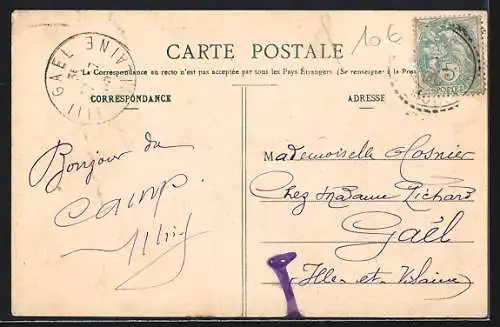 10 €
CARTE POSTALE
La Correspondance au recto n'est pas acceptée par tous les Pays Étrangers (Se renseigner à la Poste
CORRESPONDANCE
ADRESSE
GAEL
ILLE
VILAINE
5c
POSTES
Bonjour du
camp.
Mademoiselle Hosnier
Chez Madame Richard
Gaël
Ille-et-Vilaine